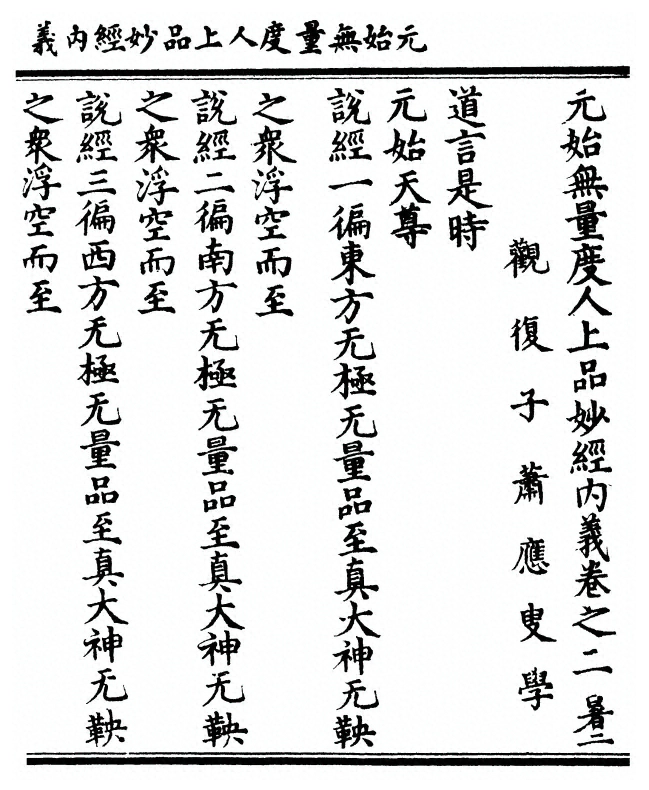 元始無量度人上品妙經内義
元始無量度人上品妙經内義卷之二 暑二
觀復子蕭應叟學
道言是時
元始天尊
說經一徧東方无極无量品至真大神无鞅
之衆浮空而至
說經二徧南方无極无量品至真大神无鞅
之衆浮空而至
說經三徧西方无極无量品至真大神无鞅
之衆浮空而至